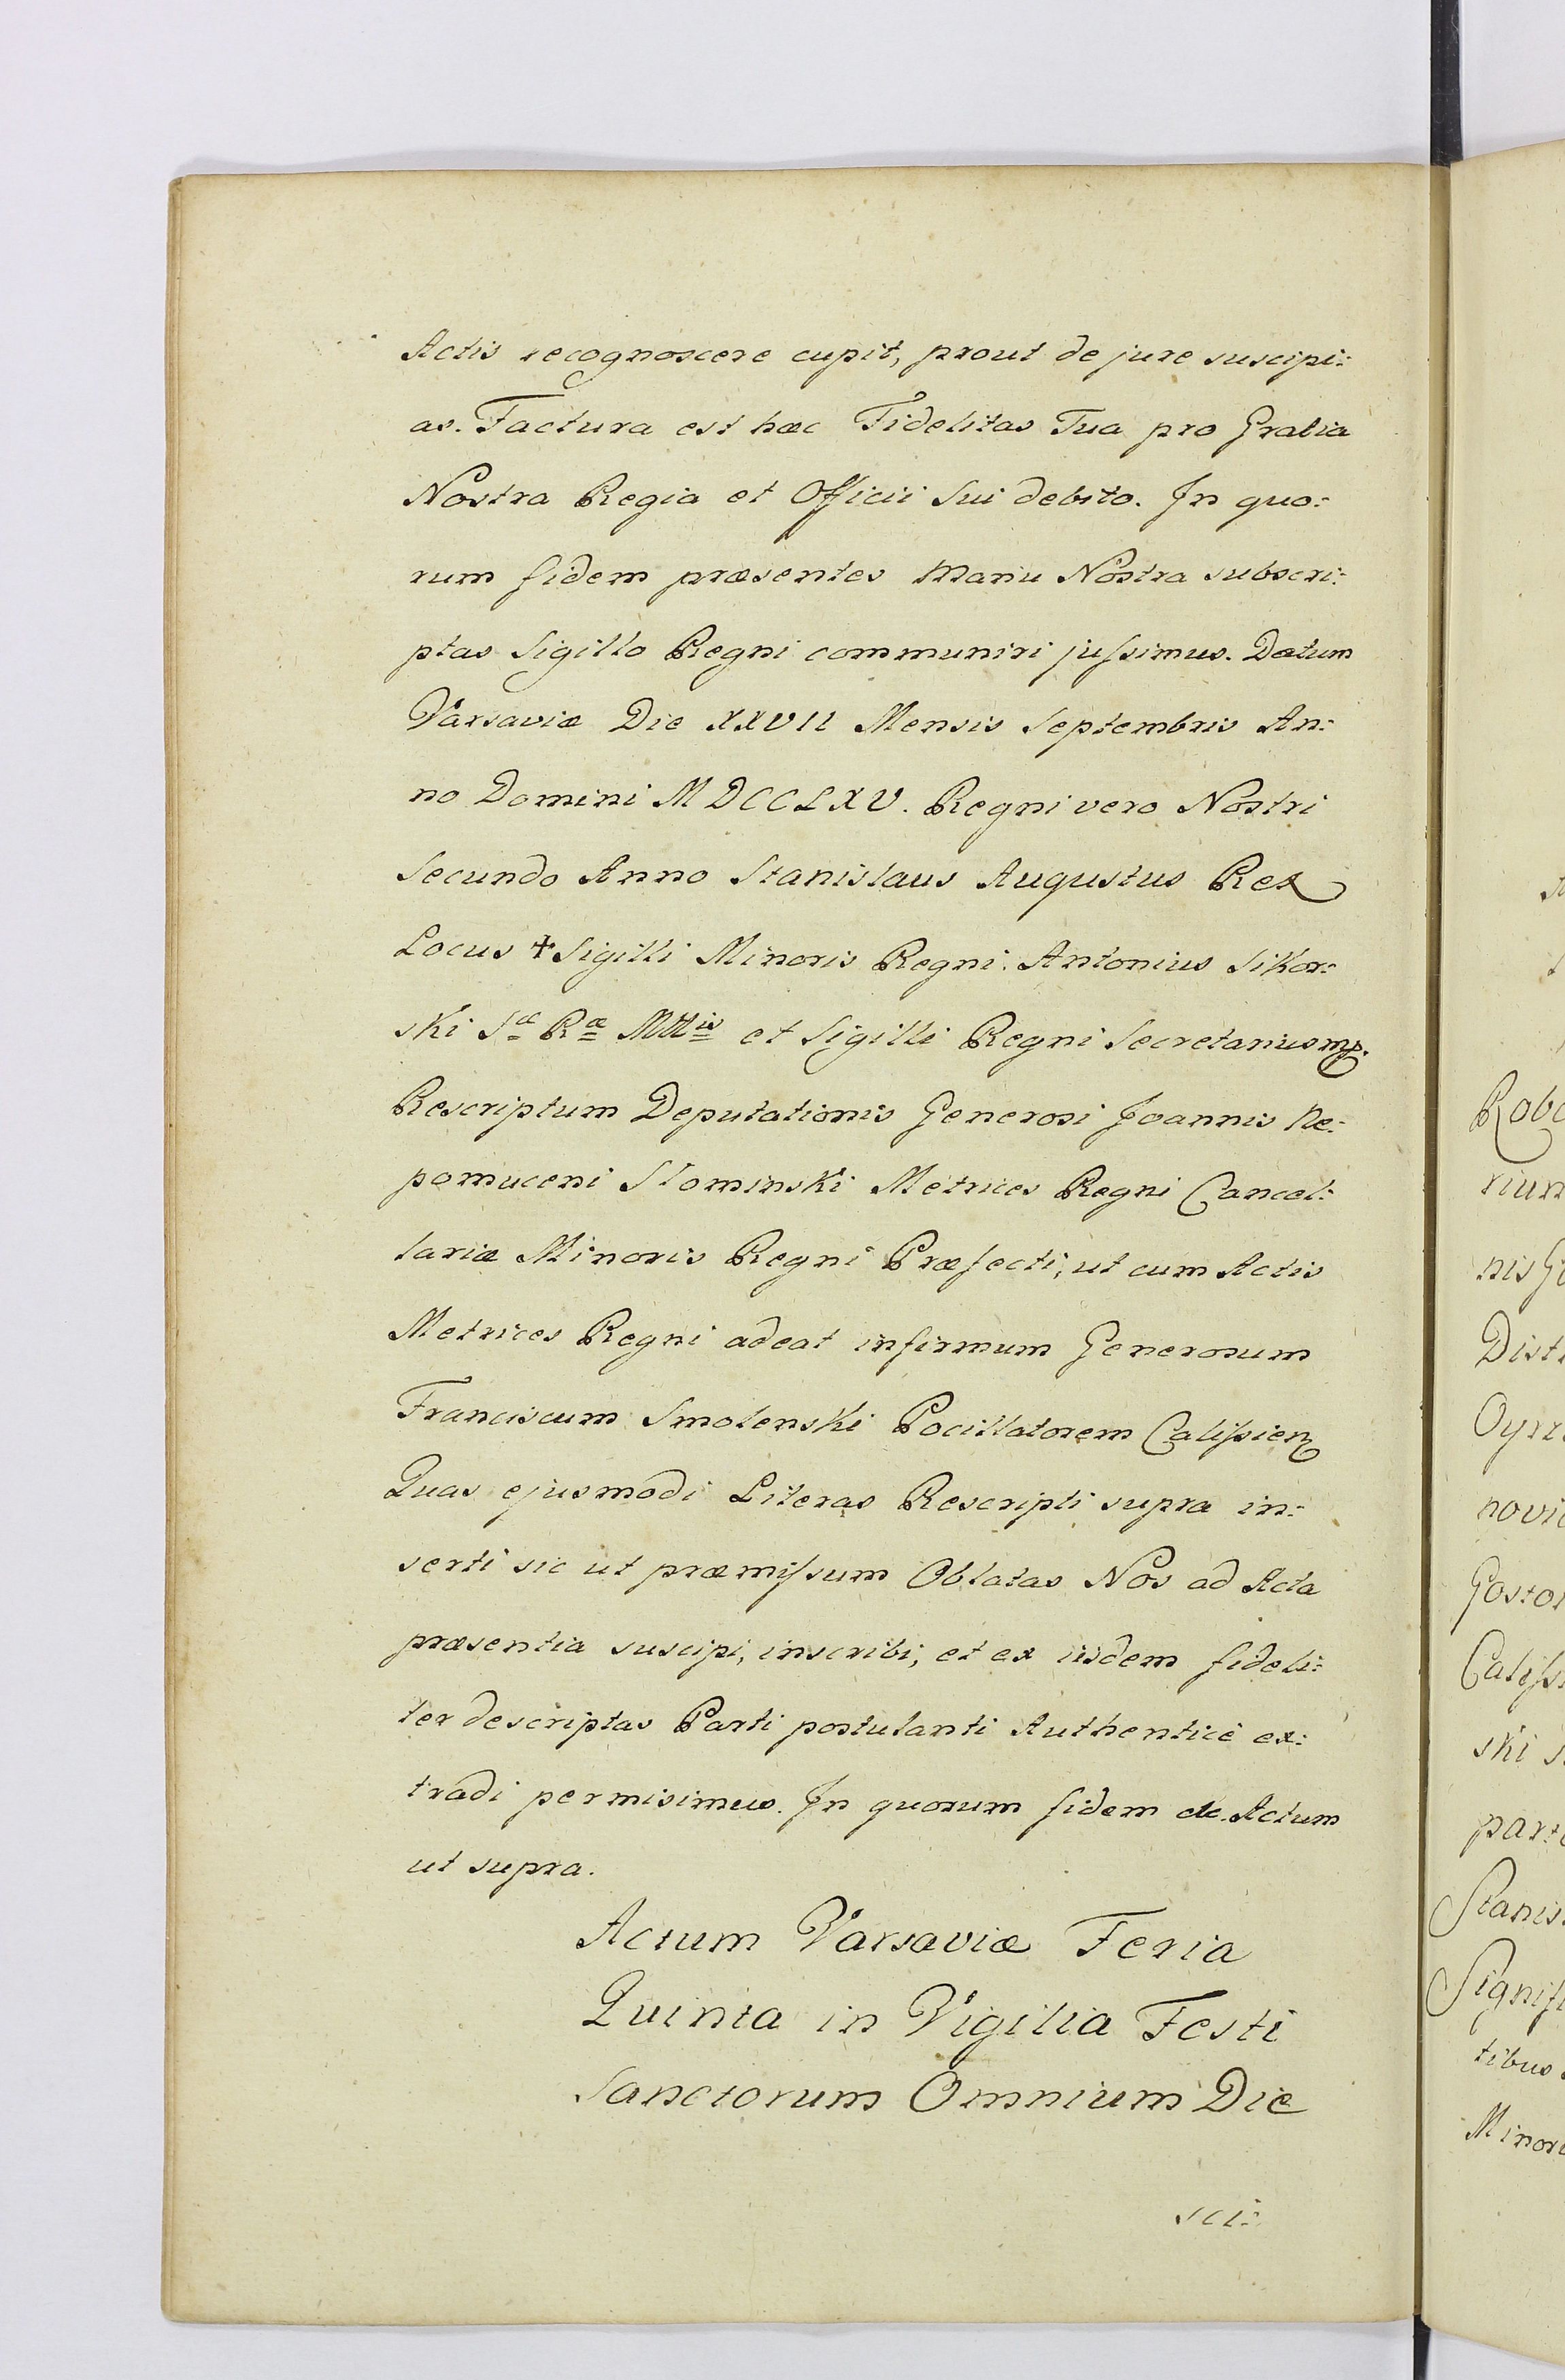 Actis recognoscere cupit, prout de jure suscipi:
as. Factura est hæc Fidelitas Tua pro Gratia
Nostra Regia et Officii Sui debito. In quo:
rum fidem præsentes Manu Nostra subscri:
ptas Sigillo Regni communiri juſsimus. Datum
Varsaviæ Die XXVII Mensis Septembris An:
no Domini MDCCLXV. Regni vero Nostri
Secundo Anno Stanislaus Augustus Rex
Locus ✝ Sigilli Minoris Regni. Antonius Sikor:
ski Sæ Ræ Mttis et Sigilli Regni Secretarius mp.
Rescriptum Deputationis Generosi Joannis Ne:
pomuceni Slominski Metrices Regni Cancel:
lariæ Minoris Regni Præfecti, ut cum Actis
Metrices Regni adeat infirmum Generosum
Franciscum Smolenski Pocillatorem Caliſsien
Quas ejusmodi Literas Rescripti supra in:
serti sic ut præmiſsum Oblatas Nos ad Acta
præsentia suscipi, inscribi, et ex iisdem fideli:
ter descriptas Parti postulanti Authenticè ex:
tradi permisimus. In quorum fidem etc. Actum
ut supra.
Actum Varsaviæ Feria
Quinta in Vigilia Festi
Sanctorum Omnium Die
sci:
Robo
rium
nis Ge
Distr
novic
Gostor
Caliſs
ski
part
Stanis
Signifi
tibus
Minori